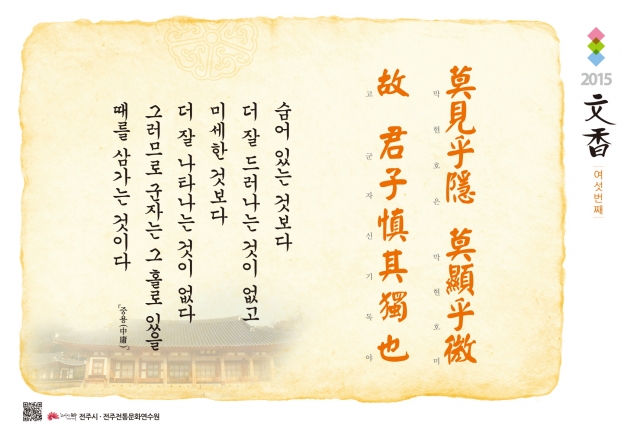 2015
文香
여섯번째
莫見乎隱 莫顯乎微
막현호은 막현호미
故 君子慎其獨也
고 군자신기독야
숨어 있는 것보다
더 잘 드러나는 것이 없고
미세한 것보다
더 잘 나타나는 것이 없다
그러므로 군자는 그 홀로 있을
때를 삼가는 것이다
「중용(中庸)」
전주시 · 전주전통문화연수원